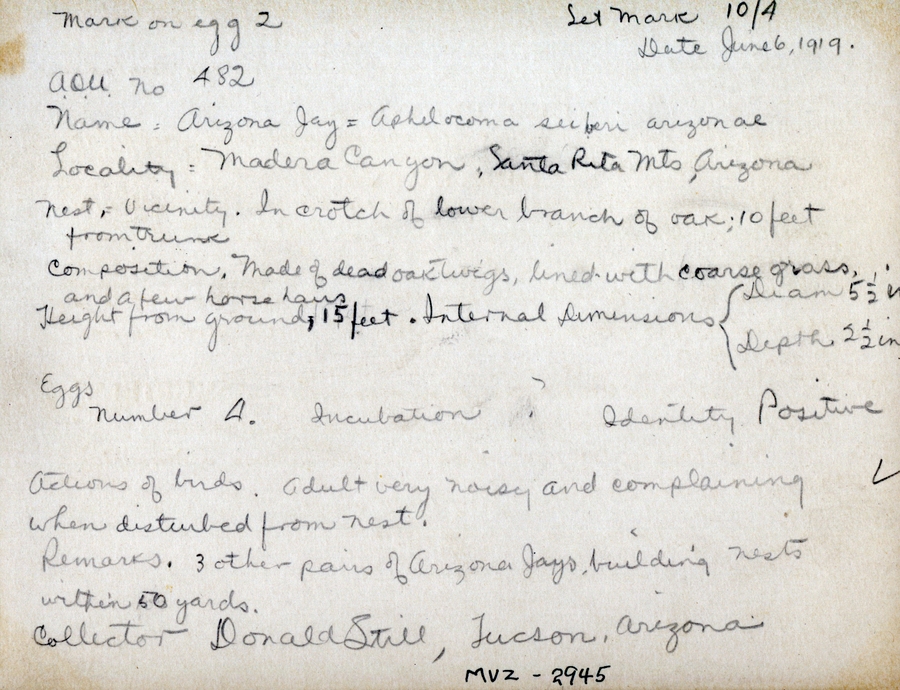 Mark on egg 2 Set Mark 10/4
Date June 6, 1919.
A.O.U. no 482
Name = Arizona Jay = Aphelocoma seiberi arizonae
Locality = Madera Canyon, Santa Rita Mts, Arizona
Nest, - Vicinity. In crotch of lower branch of oak; 10 feet
from trunk
Composition. Made of dead oak twigs, lined with coarse grass,
and a few horse hairs
Height from ground; 15 feet. Internal Dimensions { Diam 5 1/2 in
Depth 2 1/2 in
Eggs
Number 4. Incubation ? Identity Positive
Actions of birds. Adult very noisy and complaining
when disturbed from nest.
Remarks. 3 other pairs of Arizona Jays, building nests
within 50 yards.
Collector Donald Still, Tucson, Arizona
MVZ - 2945